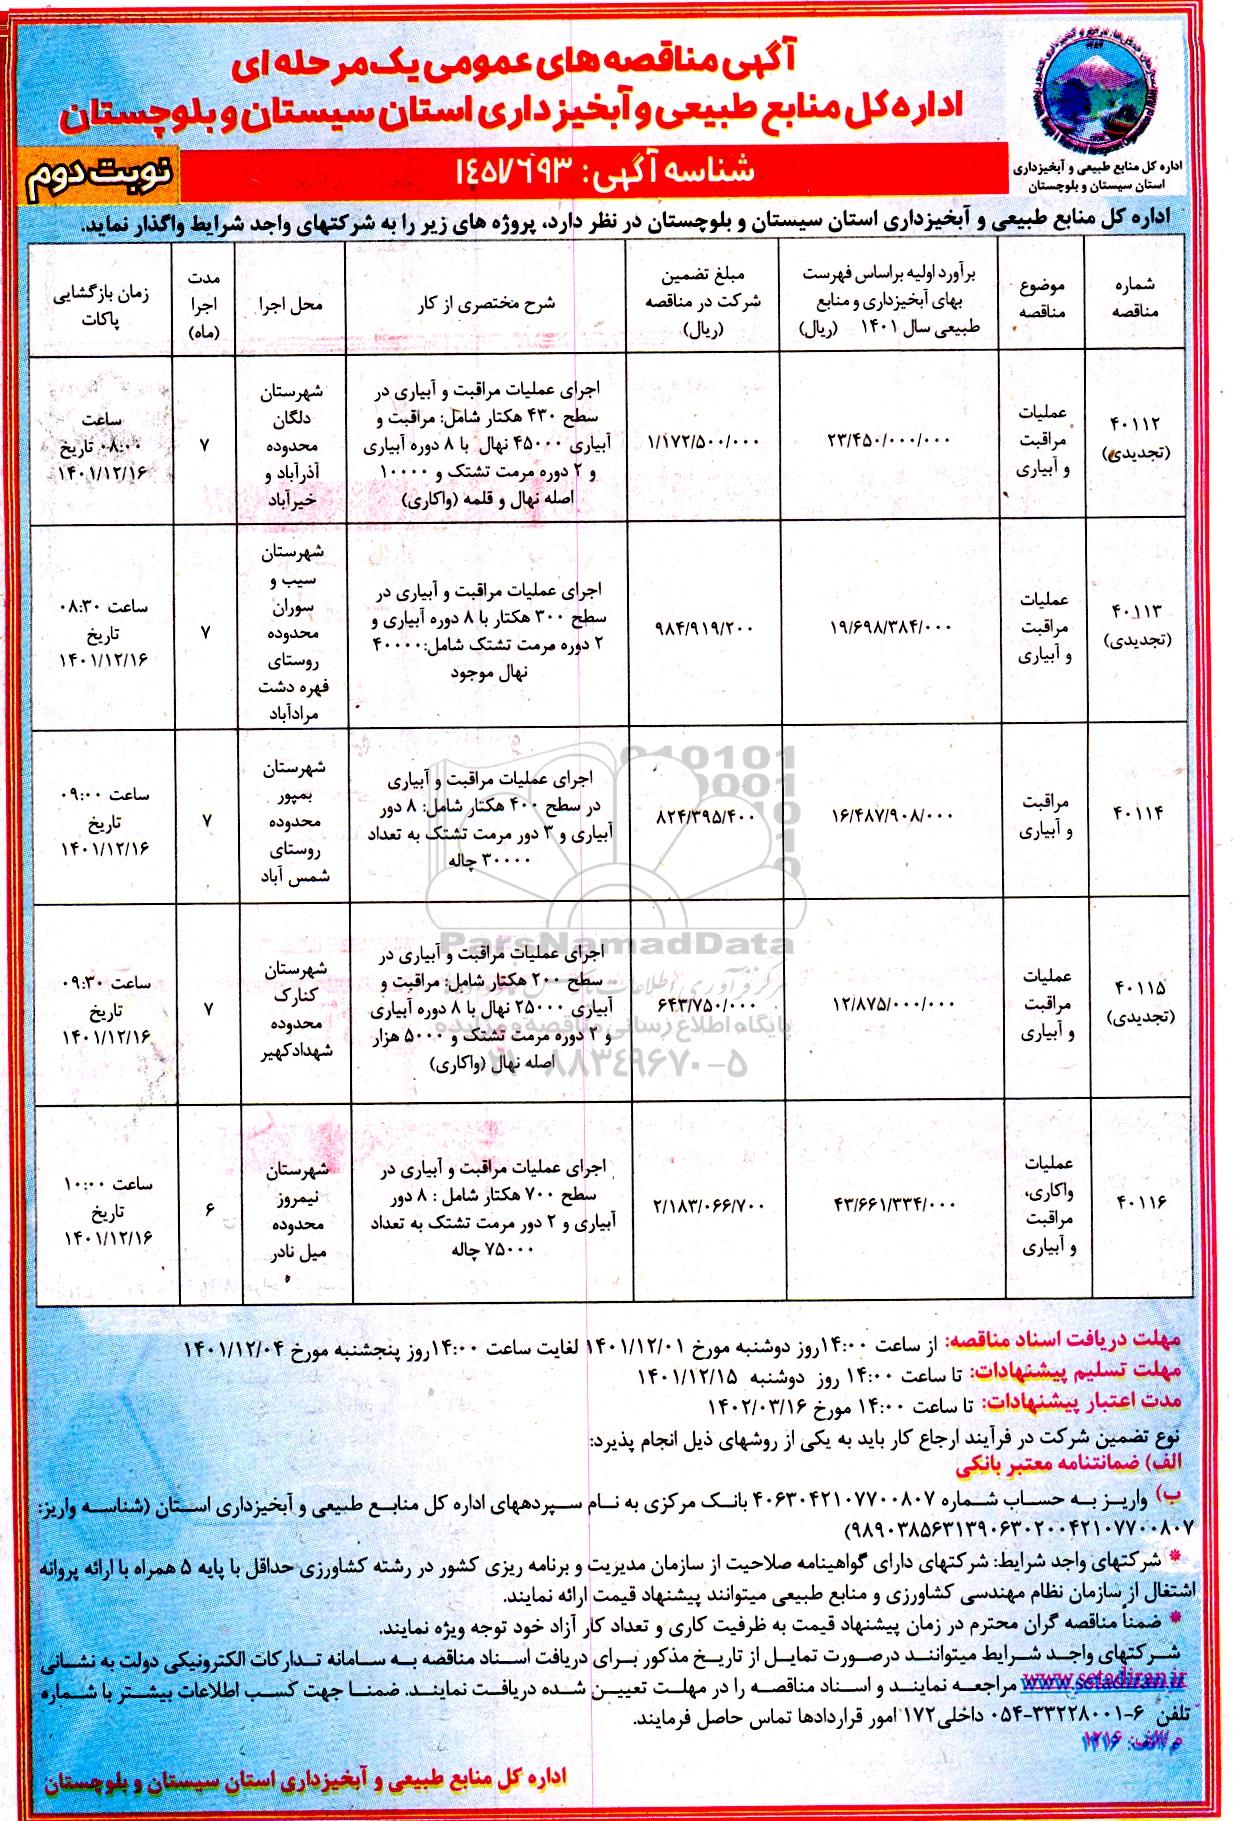 آگهی مناقصه های عمومی یک مرحله ای
اداره کل منابع طبیعی و آبخیزداری استان سیستان و بلوچستان
اداره کل منابع طبیعی و آبخیزداری
استان سیستان و بلوچستان
شناسه آگهی: ۱۴۵۷۶۹۳
نوبت دوم
اداره کل منابع طبیعی و آبخیزداری استان سیستان و بلوچستان در نظر دارد، پروژه های زیر را به شرکتهای واجد شرایط واگذار نماید.
شماره
مناقصه
موضوع
مناقصه
برآورد اولیه براساس فهرست
بهای آبخیزداری و منابع
طبیعی سال ۱۴۰۱ (ریال)
مبلغ تضمین
شرکت در مناقصه
(ریال)
شرح مختصری از کار
محل اجرا
مدت
اجرا
(ماه)
زمان بازگشایی
پاکات
۴۰۱۱۲
(تجدیدی)
عملیات
مراقبت
و آبیاری
۲۳/۴۵۰/۰۰۰/۰۰۰
۱/۱۷۲/۵۰۰/۰۰۰
اجرای عملیات مراقبت و آبیاری در
سطح ۴۳۰ هکتار شامل: مراقبت و
آبیاری ۴۵۰۰۰ نهال با ۸ دوره آبیاری
و ۲ دوره مرمت تشتک و ۱۰۰۰۰
اصله نهال و قلمه (واکاری)
شهرستان
دلگان
محدوده
آذرآباد و
خیرآباد
۷
ساعت
۰۸:۰۰ تاریخ
۱۴۰۱/۱۲/۱۶
۴۰۱۱۳
(تجدیدی)
عملیات
مراقبت
و آبیاری
۱۹/۶۹۸/۳۸۴/۰۰۰
۹۸۴/۹۱۹/۲۰۰
اجرای عملیات مراقبت و آبیاری در
سطح ۳۰۰ هکتار با ۸ دوره آبیاری و
۲ دوره مرمت تشتک شامل:۴۰۰۰۰
نهال موجود
شهرستان
سیب و
سوران
محدوده
روستای
قهره دشت
مرادآباد
۷
ساعت ۰۸:۳۰
تاریخ
۱۴۰۱/۱۲/۱۶
۴۰۱۱۴
مراقبت
و آبیاری
۱۶/۴۸۷/۹۰۸/۰۰۰
۸۲۴/۳۹۵/۴۰۰
اجرای عملیات مراقبت و آبیاری
در سطح ۴۰۰ هکتار شامل: ۸ دور
آبیاری و ۳ دور مرمت تشتک به تعداد
۳۰۰۰۰ چاله
شهرستان
بمپور
محدوده
روستای
شمس آباد
۷
ساعت ۰۹:۰۰
تاریخ
۱۴۰۱/۱۲/۱۶
ParsNamadData
پایگاه اطلاع رسانی مناقصه و مزایده
۰۲۱-۸۸۳۴۹۶۷۰-۵
۴۰۱۱۵
(تجدیدی)
عملیات
مراقبت
و آبیاری
۱۲/۸۷۵/۰۰۰/۰۰۰
۶۴۳/۷۵۰/۰۰۰
اجرای عملیات مراقبت و آبیاری در
سطح ۲۰۰ هکتار شامل: مراقبت و
آبیاری ۲۵۰۰۰ نهال با ۸ دوره آبیاری
و ۲ دوره مرمت تشتک و ۵۰۰۰ هزار
اصله نهال (واکاری)
شهرستان
کنارک
محدوده
شهدادکهیر
۷
ساعت ۰۹:۳۰
تاریخ
۱۴۰۱/۱۲/۱۶
۴۰۱۱۶
عملیات
واکاری،
مراقبت
و آبیاری
۴۳/۶۶۱/۳۳۴/۰۰۰
۲/۱۸۳/۰۶۶/۷۰۰
اجرای عملیات مراقبت و آبیاری در
سطح ۷۰۰ هکتار شامل : ۸ دور
آبیاری و ۲ دور مرمت تشتک به تعداد
۷۵۰۰۰ چاله
شهرستان
نیمروز
محدوده
میل نادر
۶
ساعت ۱۰:۰۰
تاریخ
۱۴۰۱/۱۲/۱۶
مهلت دریافت اسناد مناقصه: از ساعت ۱۴:۰۰روز دوشنبه مورخ ۱۴۰۱/۱۲/۰۱ لغایت ساعت ۱۴:۰۰روز پنجشنبه مورخ ۱۴۰۱/۱۲/۰۴
مهلت تسلیم پیشنهادات: تا ساعت ۱۴:۰۰ روز دوشنبه ۱۴۰۱/۱۲/۱۵
مدت اعتبار پیشنهادات: تا ساعت ۱۴:۰۰ مورخ ۱۴۰۲/۰۳/۱۶
نوع تضمین شرکت در فرآیند ارجاع کار باید به یکی از روشهای ذیل انجام پذیرد:
الف) ضمانتنامه معتبر بانکی
ب) واریز به حساب شماره ۴۰۶۳۰۴۲۱۰۷۷۰۰۸۰۷ بانک مرکزی به نام سپردههای اداره کل منابع طبیعی و آبخیزداری استان (شناسه واریز:
۹۸۹۰۳۸۵۶۳۱۳۹۰۶۳۰۲۰۰۴۲۱۰۷۷۰۰۸۰۷)
* شرکتهای واجد شرایط: شرکتهای دارای گواهینامه صلاحیت از سازمان مدیریت و برنامه ریزی کشور در رشته کشاورزی حداقل با پایه ۵ همراه با ارائه پروانه
اشتغال از سازمان نظام مهندسی کشاورزی و منابع طبیعی میتوانند پیشنهاد قیمت ارائه نمایند.
* ضمناً مناقصه گران محترم در زمان پیشنهاد قیمت به ظرفیت کاری و تعداد کار آزاد خود توجه ویژه نمایند.
شرکتهای واجد شرایط میتوانند درصورت تمایل از تاریخ مذکور برای دریافت اسناد مناقصه به سامانه تدارکات الکترونیکی دولت به نشانی
www.setadiran.ir مراجعه نمایند و اسناد مناقصه را در مهلت تعیین شده دریافت نمایند. ضمنا جهت کسب اطلاعات بیشتر با شماره
تلفن ۶-۳۳۲۲۸۰۰۱-۰۵۴ داخلی۱۷۲ امور قراردادها تماس حاصل فرمایند.
م الف: ۱۲۱۶
اداره کل منابع طبیعی و آبخیزداری استان سیستان و بلوچستان